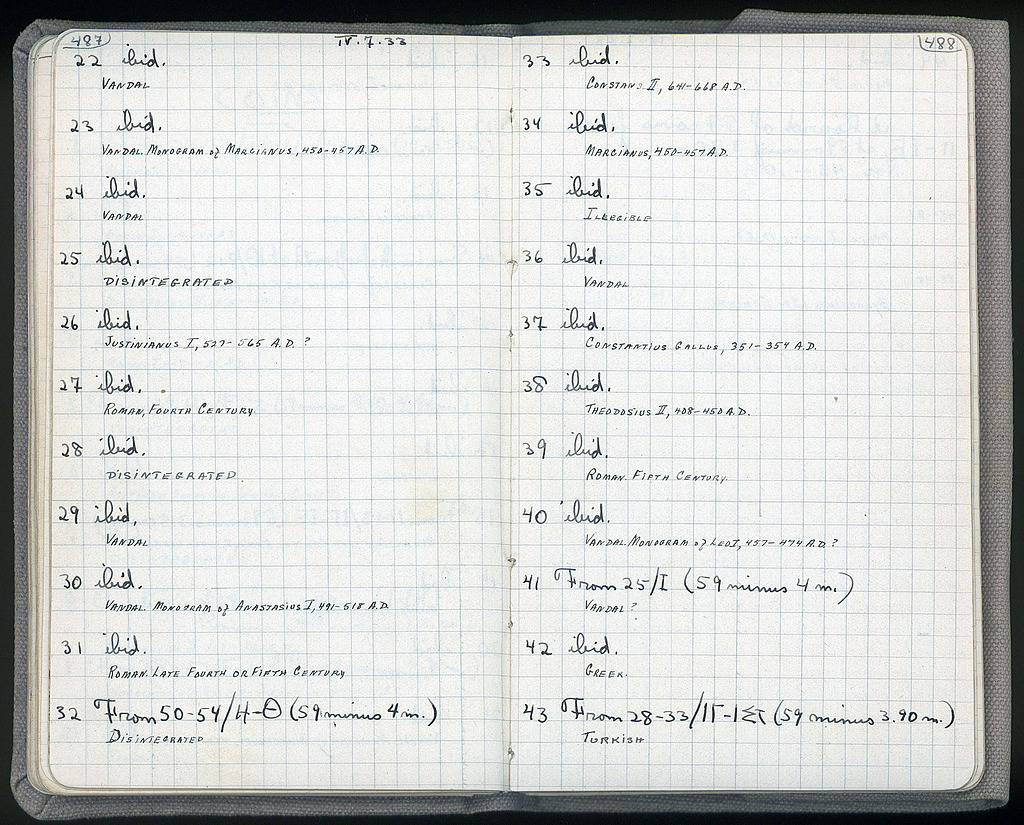 487
IV.7.33
22 ibid.
VANDAL
23 ibid.
VANDAL. MONOGRAM of MARCIANUS, 450-457 A.D.
24 ibid.
VANDAL
25 ibid.
DISINTEGRATED
26 ibid.
JUSTINIANUS I, 527-565 A.D. ?
27 ibid.
ROMAN, FOURTH CENTURY
28 ibid.
DISINTEGRATED
29 ibid.
VANDAL
30 ibid.
VANDAL. MONOGRAM of ANASTASIUS I, 491-518 A.D.
31 ibid.
ROMAN. LATE FOURTH OR FIFTH CENTURY
32 From 50-54/Η-Θ (59 minus 4 m.)
DISINTEGRATED
488
33 ibid.
CONSTANS II, 641-668 A.D.
34 ibid.
MARCIANUS, 450-457 A.D.
35 ibid.
ILLEGIBLE
36 ibid.
VANDAL
37 ibid.
CONSTANTIUS GALLUS, 351-354 A.D.
38 ibid.
THEODOSIUS II, 408-450 A.D.
39 ibid.
ROMAN. FIFTH CENTURY.
40 ibid.
VANDAL. MONOGRAM of LEO I, 457-474 A.D. ?
41 From 25/I (59 minus 4 m.)
VANDAL ?
42 ibid.
GREEK.
43 From 28-33/ΙΓ-ΙΣΤ (59 minus 3.90 m.)
TURKISH